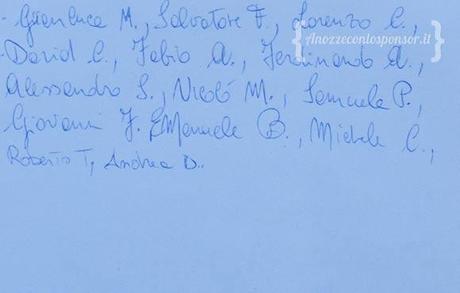 - Gianluca M., Salvatore F., Lorenzo C.,
{ Anozzeconlosponsor.it }
- David C., Fabio A., Ferdinando A.,
Alessandro S., Nicolò M., Samuele P.,
Giovanni F. EManuele B., Michele C.,
Roberto T, Andrea D..